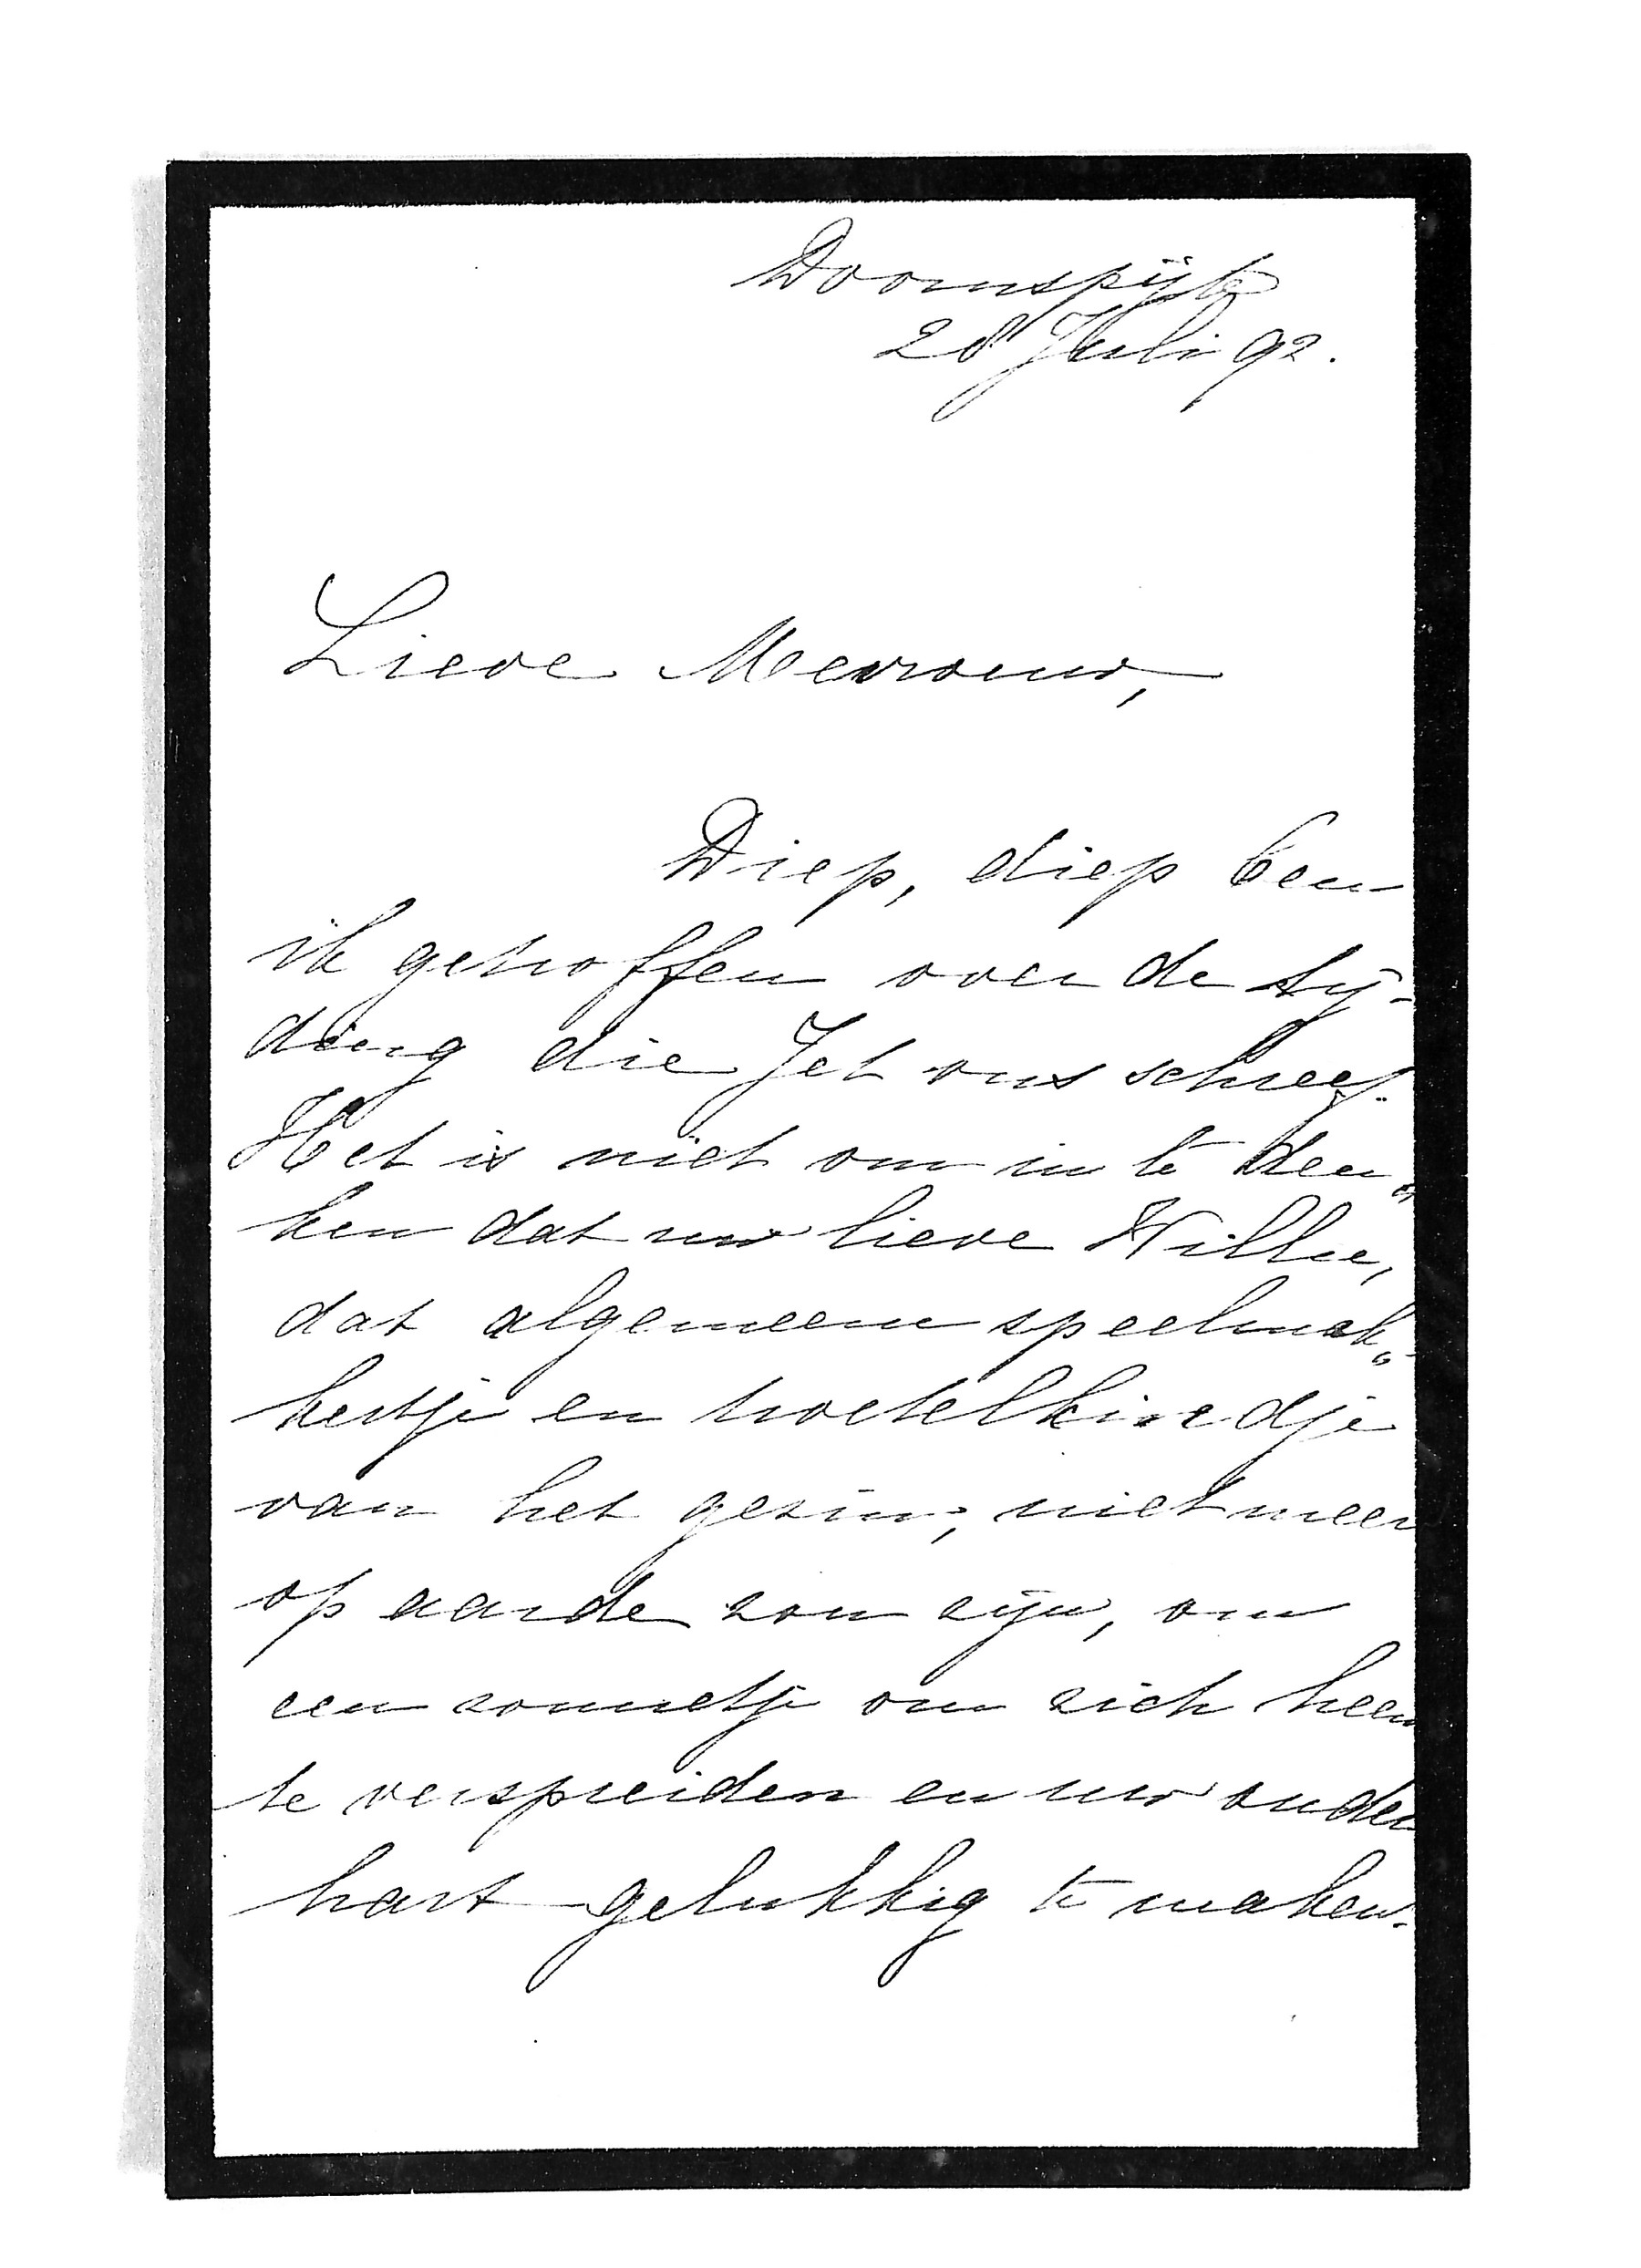 Doornspijk
28 Juli 92.
Lieve Mevrouw,
Diep, diep ben
ik getroffen over de tij-
ding die Jet ons schreef.
Het is niet om in te den„
ken dat uw lieve Willie,
dat algemeen speelmak„
kertje en troetelkindje
van het gezin, niet meer
op aarde zou zijn, om
een zonnetje om zich heen
te verspreiden en uw ouder
hart gelukkig te maken.